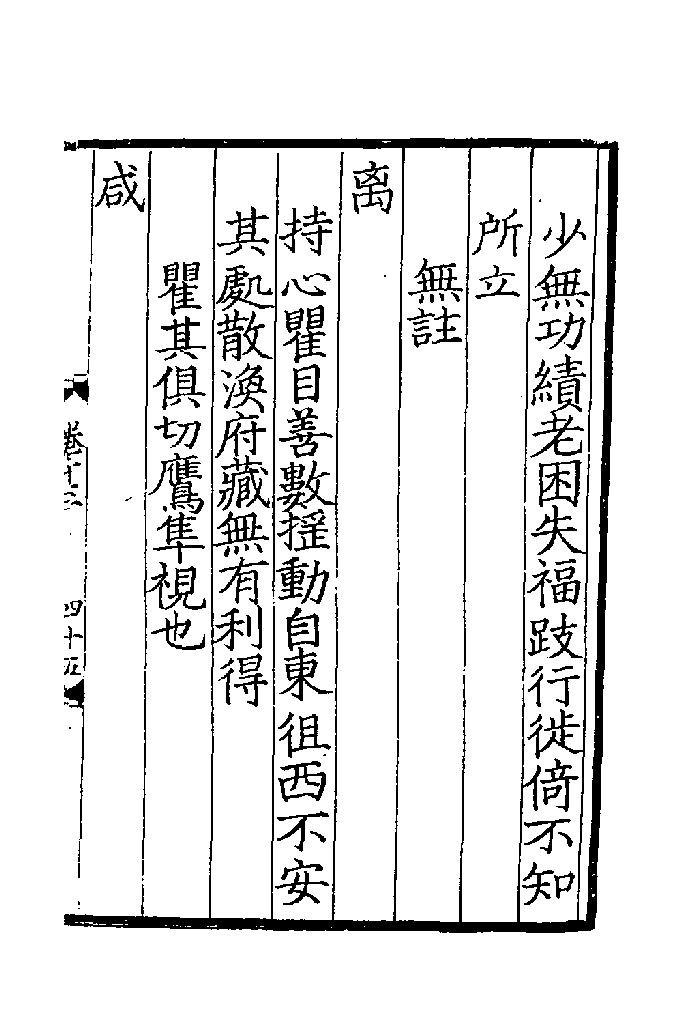 少無功績老困失福跂行徙倚不知
所立
無註
离
持心瞿目善數摇動自東徂西不安
其處散渙府藏無有利得
瞿其俱切鷹隼視也
咸
卷十三
四十五